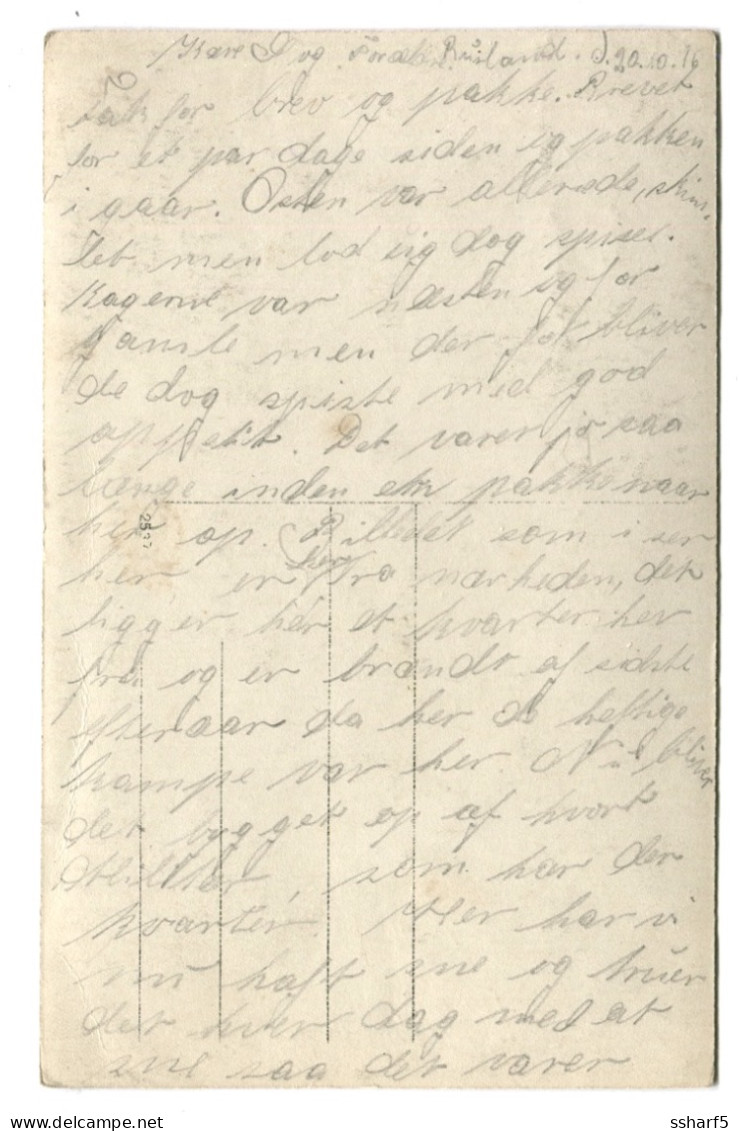 Rusland. d. 20.10.16
Tak for brev og pakke. Brevet
for et par dage siden og pakken
i gaar. Osten var allerede, skim-
let men lod sig dog spise.
Kagerne var næsten og for
gamle men der for bliver
de dog spiste med god
appetit. Det varer jo saa
længe inden en pakke naar
her op. Billedet som i ser
her er fra nærheden, det
ligger her et kvarter her
fra og er brændt af sidste
efteraar da her de heftige
kampe var her. Nu bliver
det bygget op af hvort
som har der
kvarter. Her har vi
nu haft sne og truer
det hver dag med at
sne saa det varer
2533
ssharf5